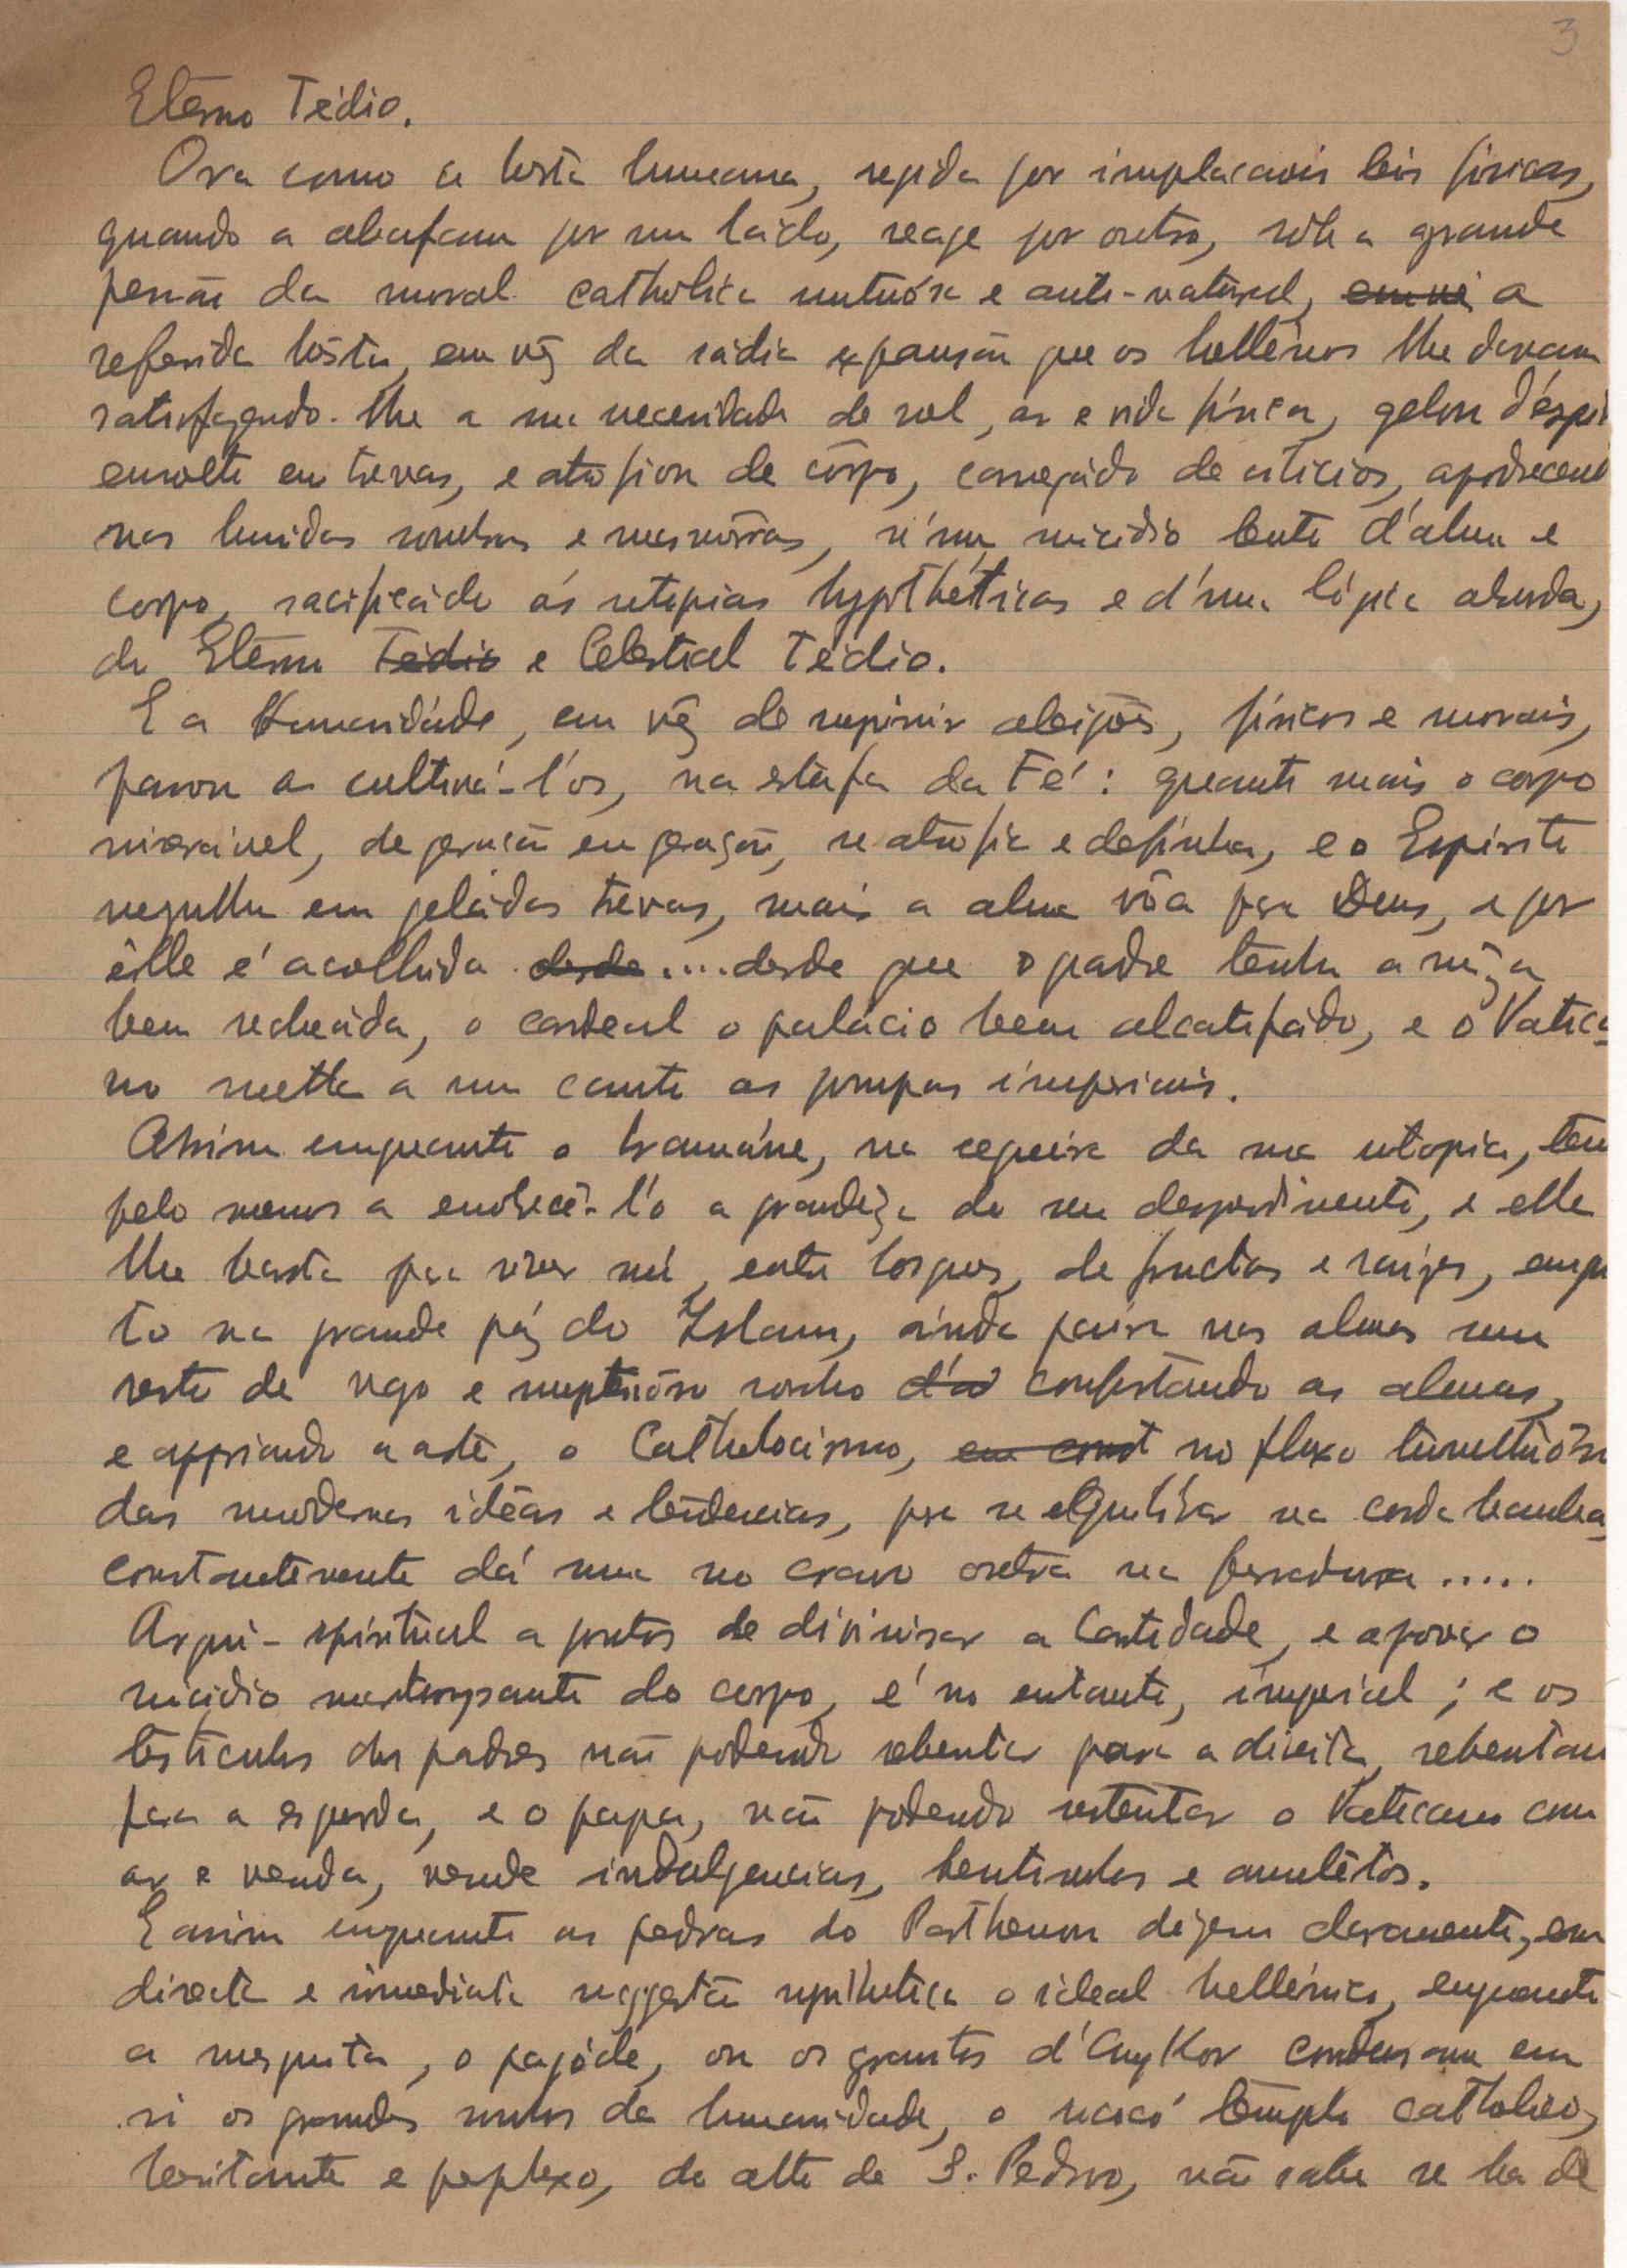 3
Eterno Tédio.
Ora como a bésta humana, regida por implacaveis leis fisicas,
quando a abafam por um lado, reage por outro, sob a grande
pensão da moral catholica untuósa e anti-natural, a
referida bêsta, em vêz da sádia expansão que os hellénos lhe davam
satisfazendo-lhe a sua necessidade de sol, ar e vida física, gelou d'éspiri
envolta em trevas, e atrofiou de côrpo, carregádo de cilicios, apodrecend
nas humidas sombras e masmôrras, n'um suicidio lento d'alma e
corpo, sacrificádo ás utopias hypothéticas e d'uma lógica absurda,
do Eterno Tédio e Celestial Tédio.
E a Humanidáde, em vêz de suprimir aleijões, físicos e morais,
passou a cultivá-l'os, na estufa da Fé: quanto mais o corpo
miseravel, de geração em geração, se atrofia e definha, e o Espirito
mergulha em geládas trevas, mais a alma vôa para Deus, e por
êlle é acolhida desde .... desde que o padre tenha a
bem recheáda, o cardeal o palácio bem alcatifádo, e o Vatica
no metta a um canto as pompas imperiais.
Assim emquanto o bramáne, na cegueira da sua utopia, tem
pelo menos a enobrecê-l'o a grandêza do seu desprendimento, e elle
lhe basta para viver nú, entre bosques, de fructas e raizes, emqu
to na grande páz do Islam, áinda paira nas almas um
resto de vago e sumptuôso sonho d'ao confortando as almas,
e apprimando a arte, o Catholocismo, em const no fluxo tumultuôso
das modernas idéas e tendencias, para se eQuilibrar na corda bamba,
constantemente dá uma no cravo outra na ferradura .....
Arqui-spiritual a pontos de divinisar a Castidade, e aprovar o
suicidio do corpo, é no entanto, imperial; e os
testiculos dos padres não podendo rebentar para a direita, rebentam
para a esquerda, e o papa, não podendo sustentar o Vaticano com
ar e venda, vende indulgencias, bentinhos e amulêtos.
E assim emquanto as pedras do Parthenon dizem claramente, em
directa e immediata suggestão synthetica o ideal hellénico, emquanto
a mesquita, o pagóde, ou os grantos d'AngKor condensam em
si os grandes sonhos da humanidade, o rócócó têmplo catholico,
hesitante e perplexo, do alto de S. Pedro, não sabe se ha de